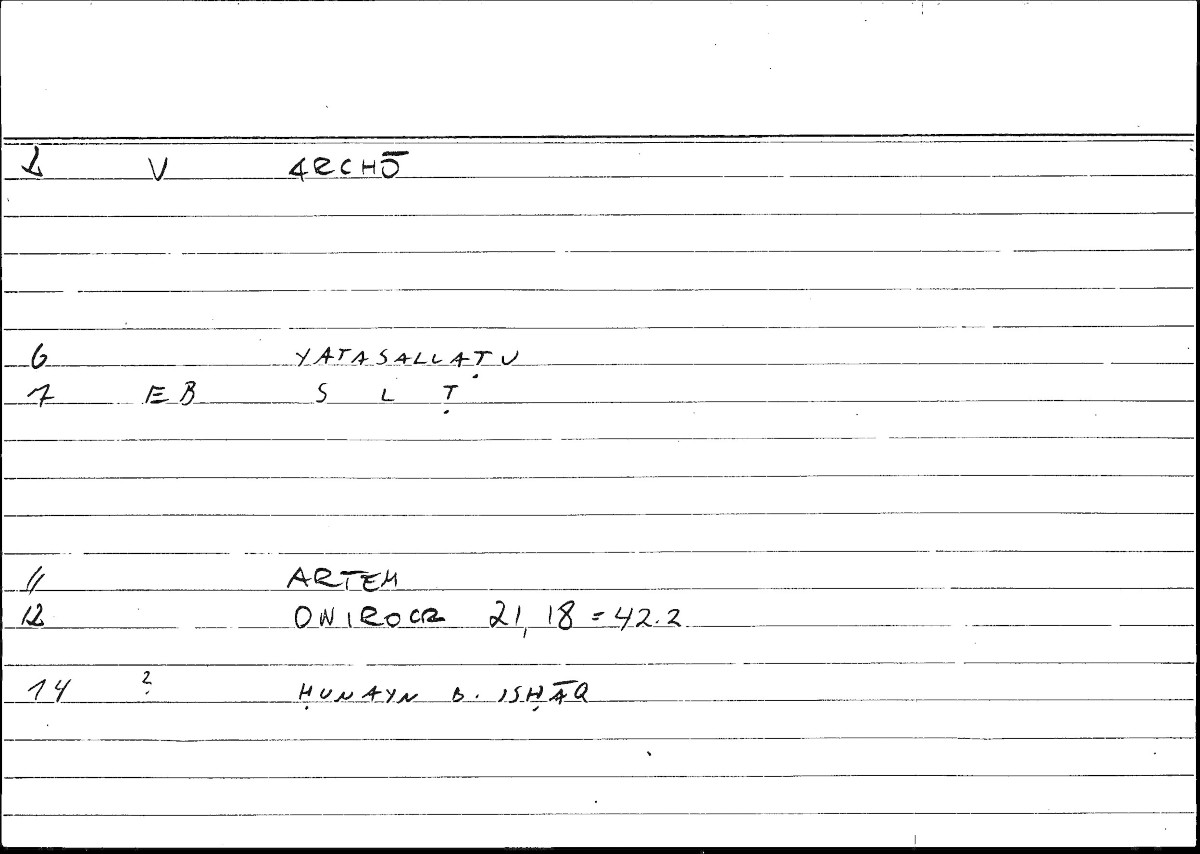 1 V ARCHŌ
6 YATASALLAṬU
7 EB S L Ṭ
11 ARTEM
12 ONIROCR 21,18 = 42.2
14 ? ḤUNAYN B. ISḤĀQ